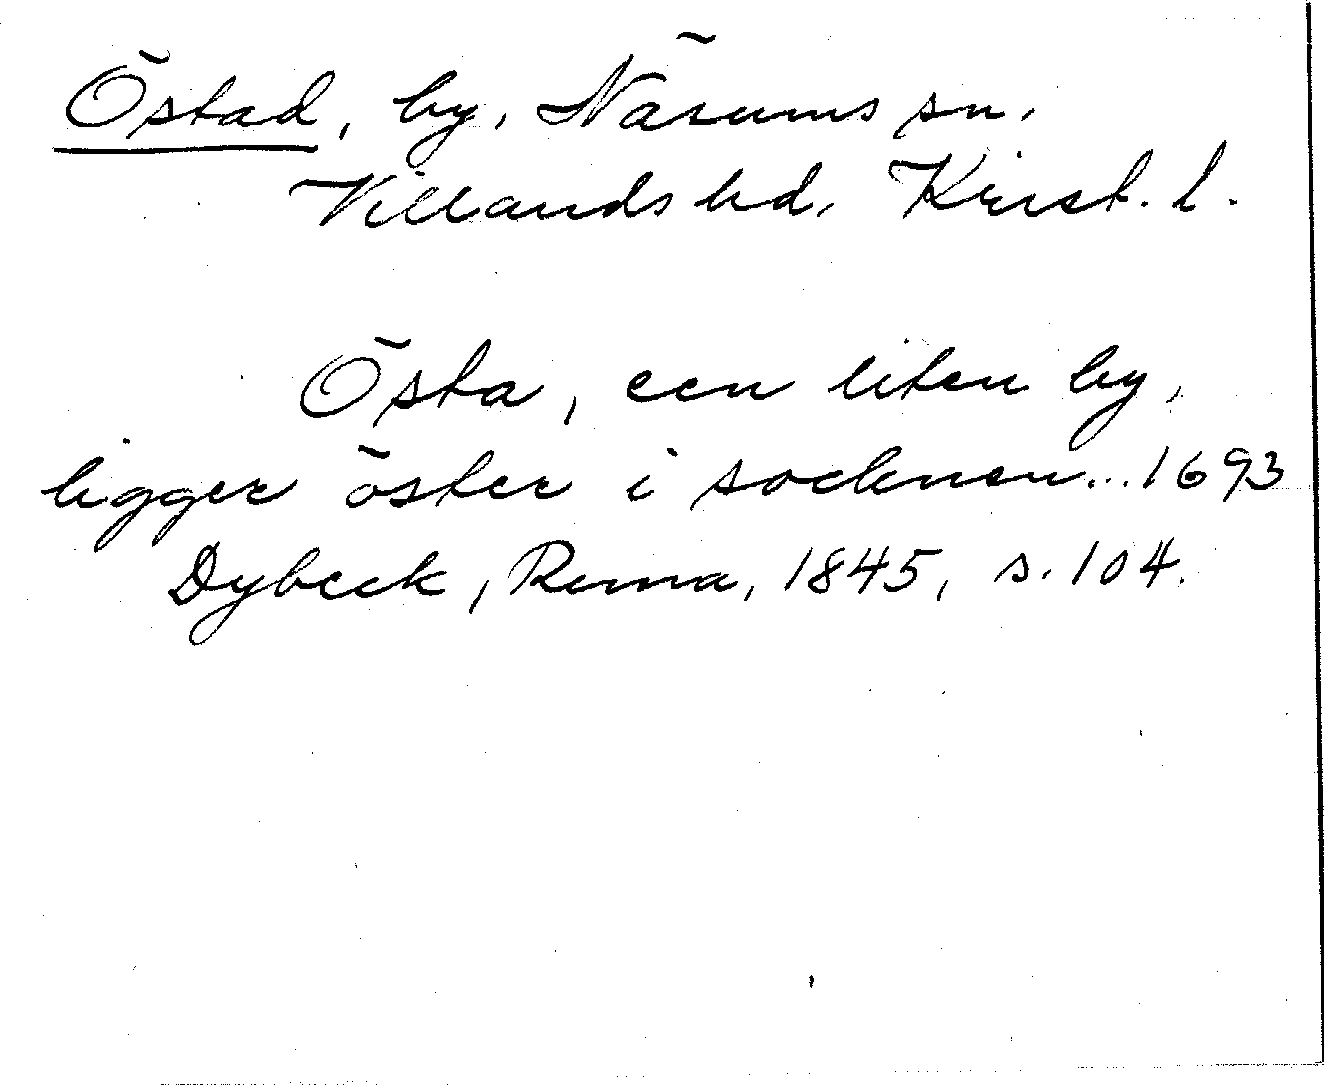 Östad, by, Näsums sn,
Villands hd, Krist. l.
Östa, een liten by,
ligger öster i socknen...1693
Dybeck, Runa, 1845, s. 104.